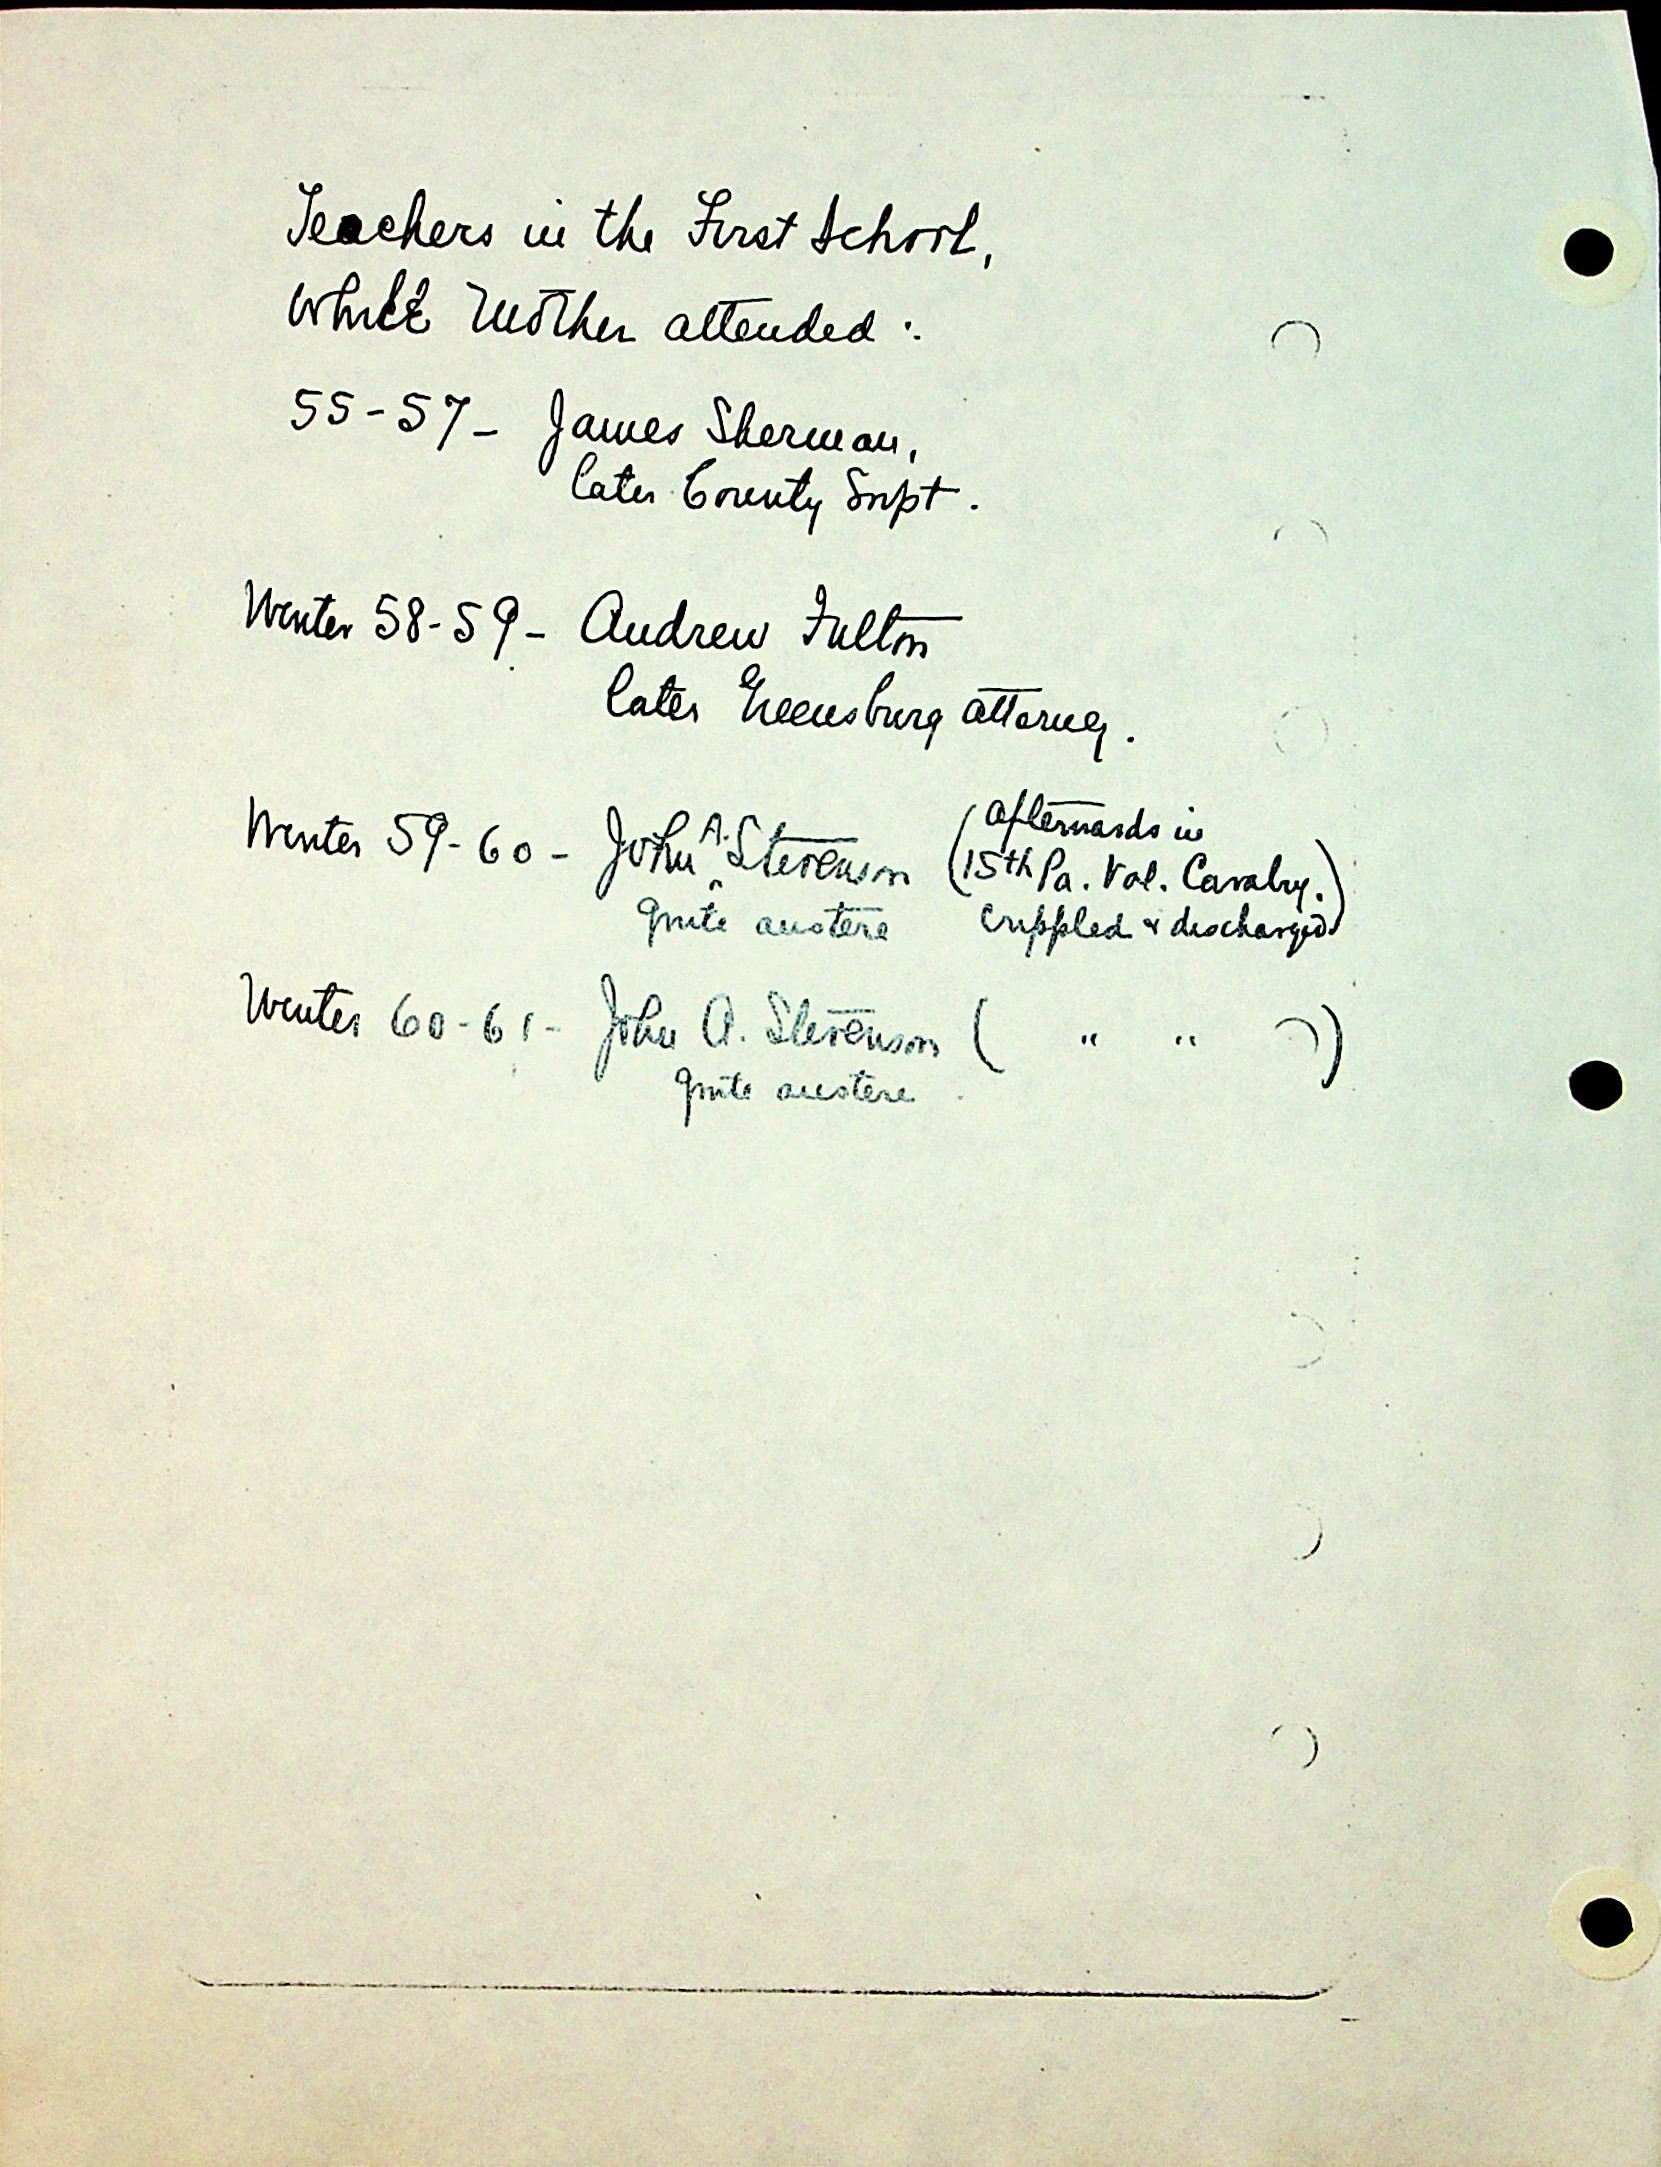 Teachers in the First School,
while Mother attended:
55-57- James Sherman,
later County Supt.
Winter 58-59- Andrew Fulton
later Greensburg attorney.
Winter 59-60- John A. Stevenson (afterwards in
15th Pa. Vol. Cavalry.)
quite austere crippled & discharged
Winter 60-61- John A. Stevenson ( " " )
quite austere